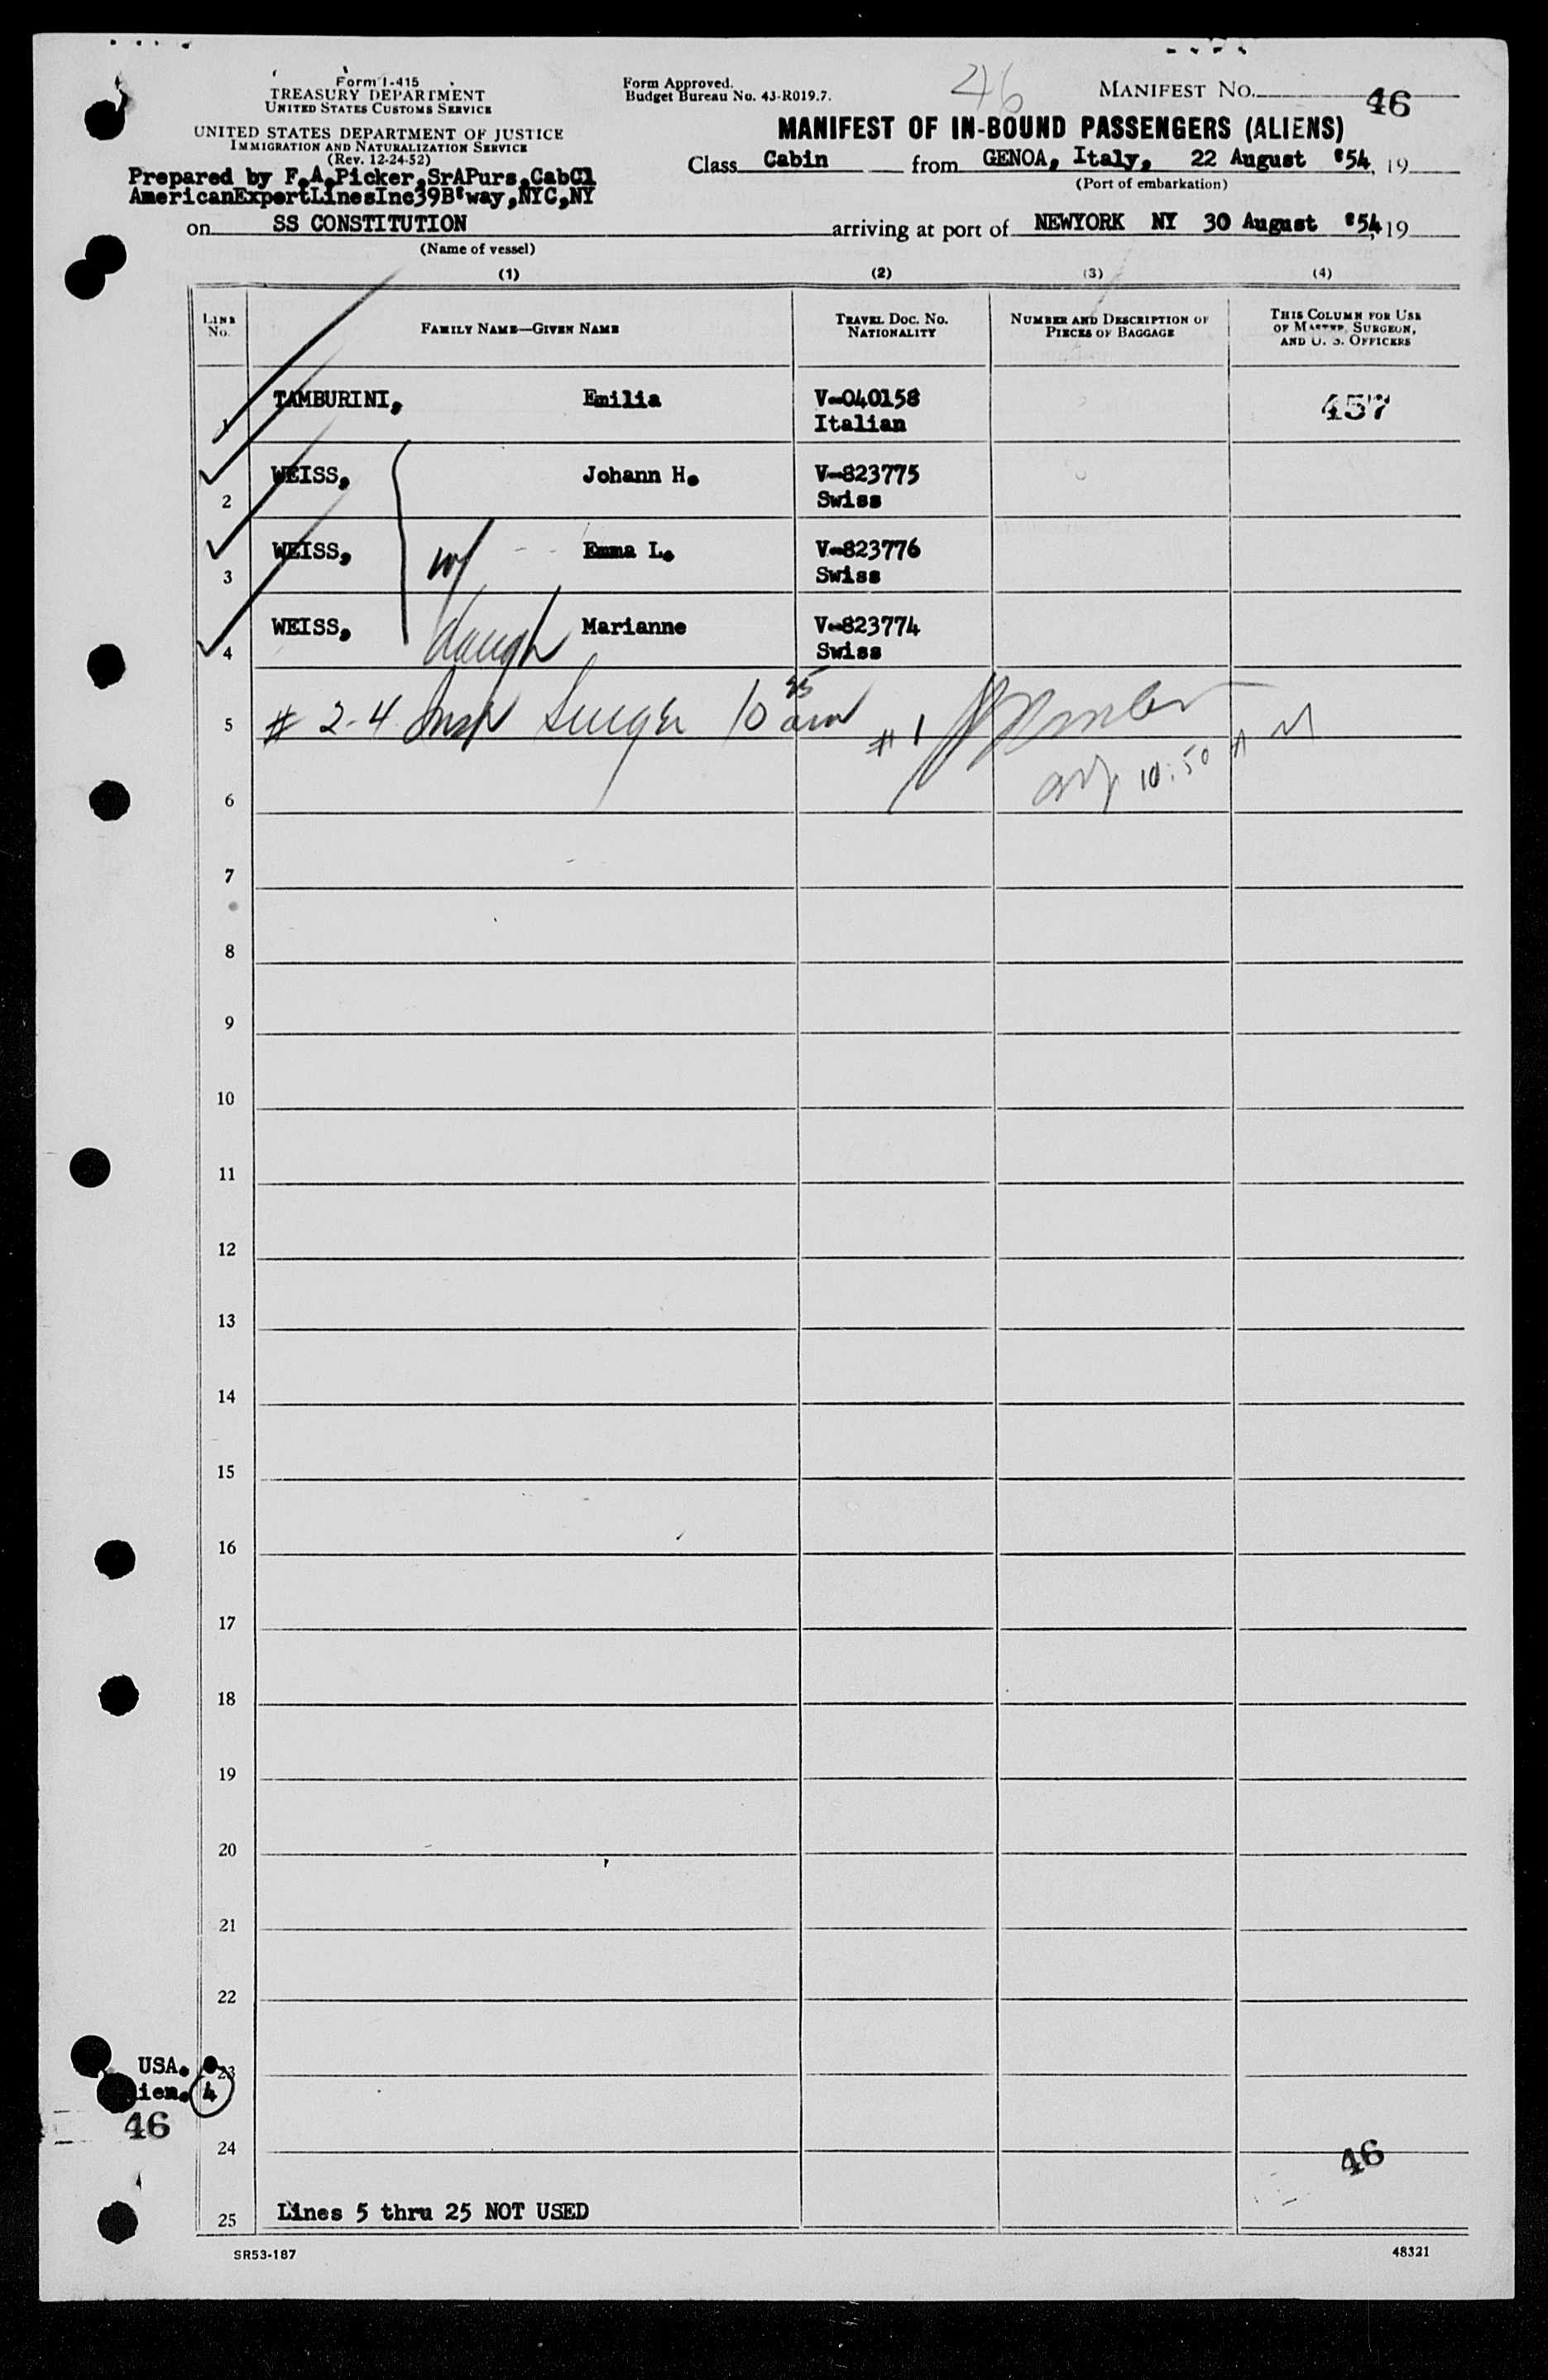 Form I-415
TREASURY DEPARTMENT
UNITED STATES CUSTOMS SERVICE
UNITED STATES DEPARTMENT OF JUSTICE
IMMIGRATION AND NATURALIZATION SERVICE
(Rev. 12-24-52)
Prepared by F.A.Picker,SrAPurs,CabCl
AmericanExportLinesInc39B'way,NYC,NY
Form Approved.
Budget Bureau No. 43-R019.7.
46
MANIFEST NO. 46
MANIFEST OF IN-BOUND PASSENGERS (ALIENS)
Class Cabin from GENOA, Italy, 22 August '54, 19
(Port of embarkation)
on SS CONSTITUTION arriving at port of NEWYORK NY 30 August '54, 19
(Name of vessel)
(1) (2) (3) (4)
LINE No. FAMILY NAME—GIVEN NAME TRAVEL DOC. NO. NATIONALITY NUMBER AND DESCRIPTION OF PIECES OF BAGGAGE THIS COLUMN FOR USE OF MASTER, SURGEON, AND U. S. OFFICERS
1 TAMBURINI, Emilia V-040158 Italian 457
2 WEISS, Johann H. V-823775 Swiss
3 WEISS, w/ Emma L. V-823776 Swiss
4 WEISS, daugh Marianne V-823774 Swiss
5 # 2-4 Insp 10 45 am # 1
6 10:50 AM
7
8
9
10
11
12
13
14
15
16
17
18
19
20
21
22
USA. 23
ien. 4
46
24
46
25 Lines 5 thru 25 NOT USED
SR53-187
48321